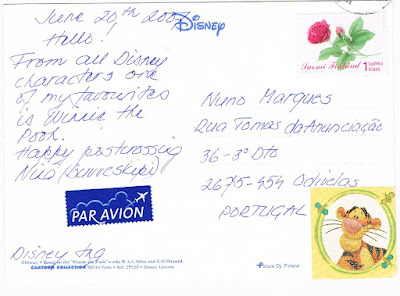 June 20th 2007
Hello!
From all Disney
characters one
of my favourites
is Winnie the
Pooh.
Happy postcrossing
PAR AVION
Disney
DISNEY
Suomi Finland
1
Nuno Marques
Rua Tomas da Anunciação
36-3º Dto
2675-454 Odivelas
PORTUGAL
©Disney • Based on the "Winnie the Pooh" works © A.A. Milne and E.H. Shepard.
CARTOON COLLECTION
Disney License
Picture Oy, Finland